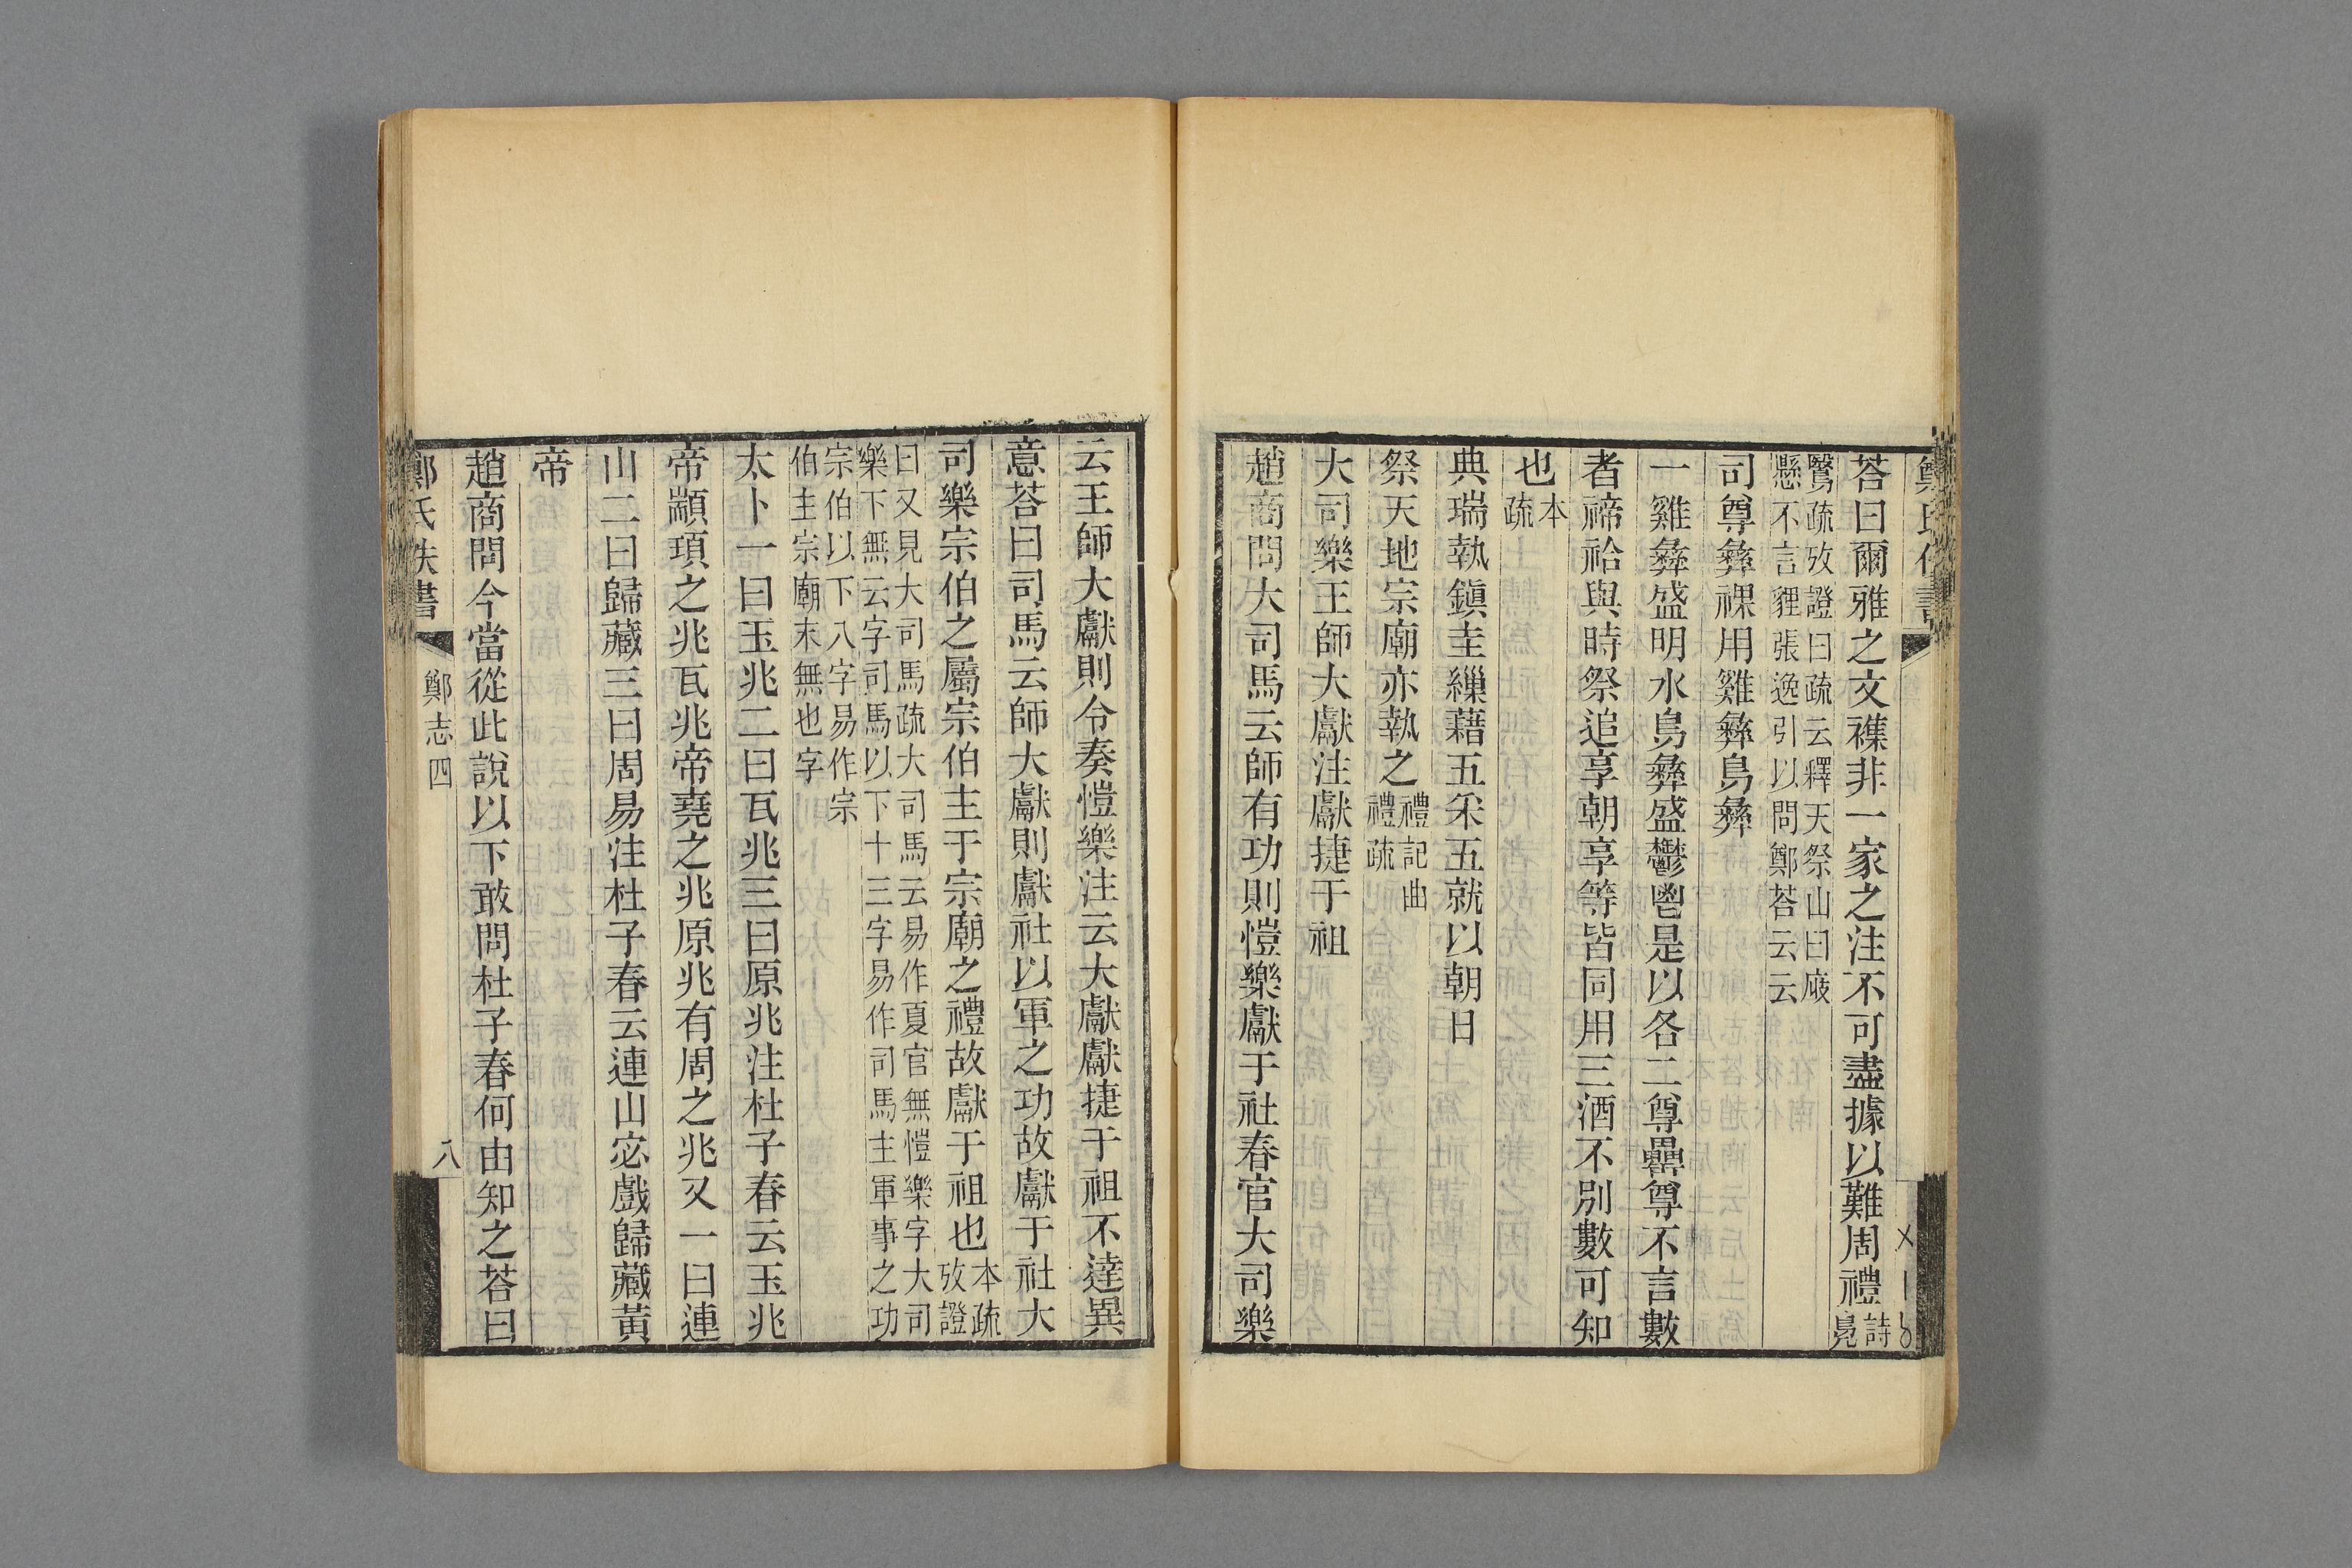 荅曰爾雅之文襍非一家之注不可盡據以難周禮詩鳧
鷖疏攷證曰疏云釋天祭山曰庪
懸不言貍張逸引以問鄭荅云云
司尊彝祼用雞彝鳥彝
一雞彝盛明水鳥彝盛鬱鬯是以各二尊罍尊不言數
者禘祫與時祭追享朝享等皆同用三酒不別數可知
也本疏
典瑞執鎮圭繅藉五采五就以朝日
祭天地宗廟亦執之禮記曲禮疏
大司樂王師大獻注獻捷于祖
趙商問大司馬云師有功則愷樂獻于社春官大司樂
云王師大獻則令奏愷樂注云大獻獻捷于祖不達異
意荅曰司馬云師大獻則獻社以軍之功故獻于社大
司樂宗伯之屬宗伯主于宗廟之禮故獻于祖也本疏攷證
曰又見大司馬疏大司馬云易作夏官無愷樂字大司
樂下無云字司馬以下十三字易作司馬主軍事之功
宗伯以下八字易作宗
伯主宗廟末無也字
太卜一曰玉兆二曰瓦兆三曰原兆注杜子春云玉兆
帝顓頊之兆瓦兆帝堯之兆原兆有周之兆又一曰連
山二曰歸藏三曰周易注杜子春云連山宓戲歸藏黃
帝
趙商問今當從此說以下敢問杜子春何由知之荅曰
鄭氏佚書
鄭志四
八